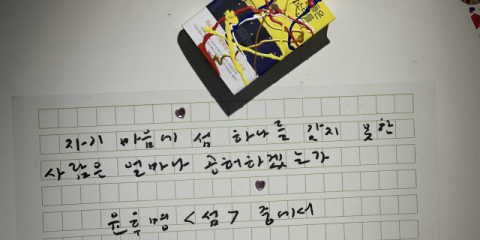 자기 마음에 섬 하나를 갖지 못한
사람은 얼마나 공허하겠는가
윤후명 <섬> 중에서